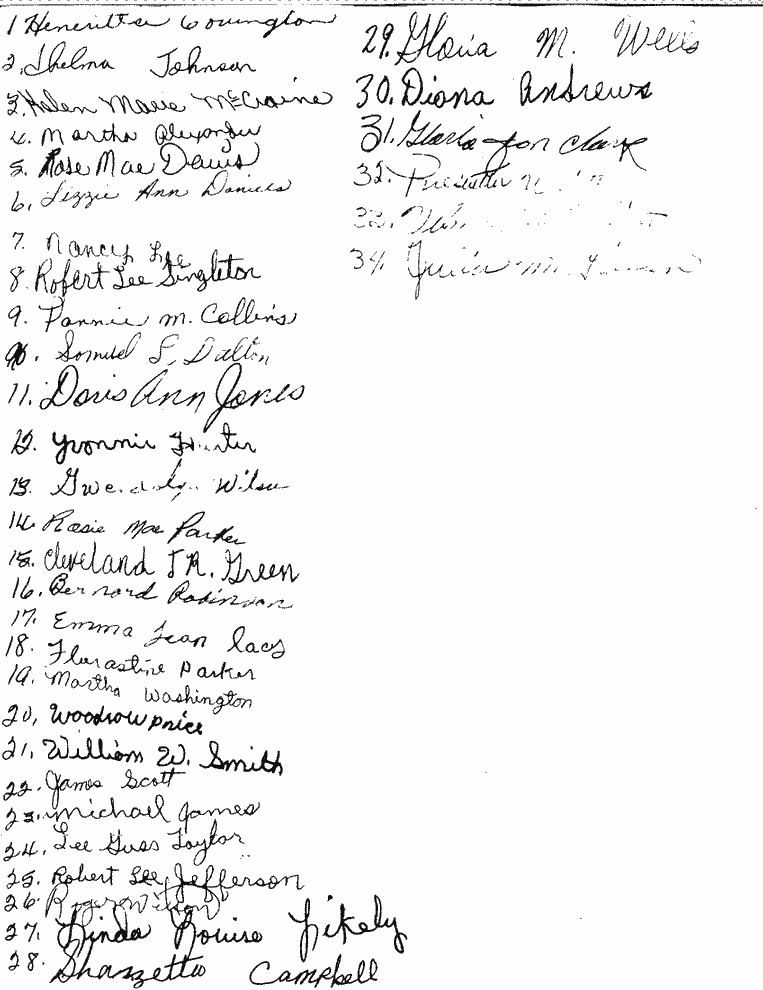 1 Heneritta Covington
2. Thelma Johnson
3. Helen Marie McCraine
4. Martha Alexander
5. Rose Mae Davis
6. Lizzie Ann Daniels
7. Nancy Lee
8. Robert Lee Singleton
9. Pannie M. Collins
10. Samuel L. Dalton
11. Doris Ann Jones
12. Yvonnie Hunter
13. Gwendolyn Wilson
14. Rosie Mae Parker
15. Cleveland JR. Green
16. Bernard Robinson
17. Emma Jean Lacy
18. Florastine Parker
19. Martha Washington
20, Woodrow price
21. William W. Smith
22. James Scott
23. michael James
24. Lee Guss Taylor
25. Robert Lee Jefferson
26. Roger Wilson
27. Linda Louise Likely
28. Shazzetta Campbell
29. Gloria M. Wells
30. Diona Andrews
31. Clark
32.
33.
34. M.